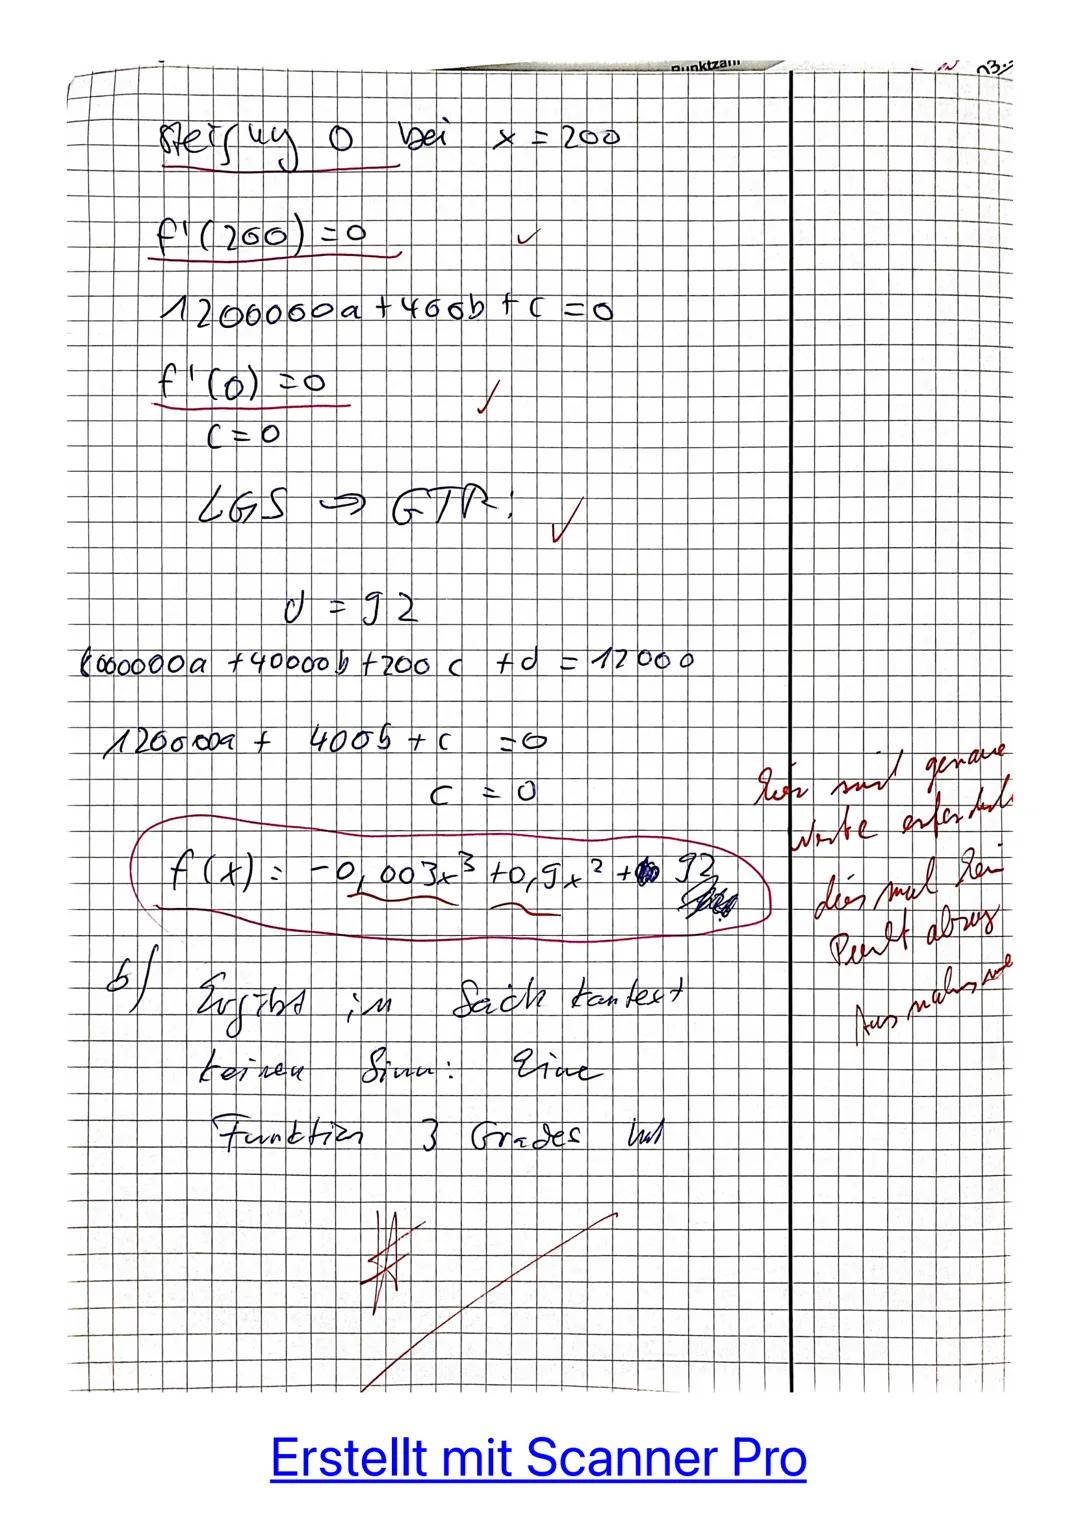 Punktzahl
Steigung 0 bei x = 200
f'(200) = 0 ✓
1200000a + 400b + c = 0
f'(0) = 0 ✓
c = 0
LGS ⇒ GTR: ✓
d = 92
8000000a + 40000b + 200c + d = 12000
120000a + 400b + c = 0
c = 0
f(x) = -0,003x³ + 0,9x² + 92
hier sind genaue
Werte erforderl.
dies mal kein
Punkt abzug
Ausnahmswe
b) Ergibt im Sachkontext
keinen Sinn: Eine
Funktion 3 Grades hat
Erstellt mit Scanner Pro